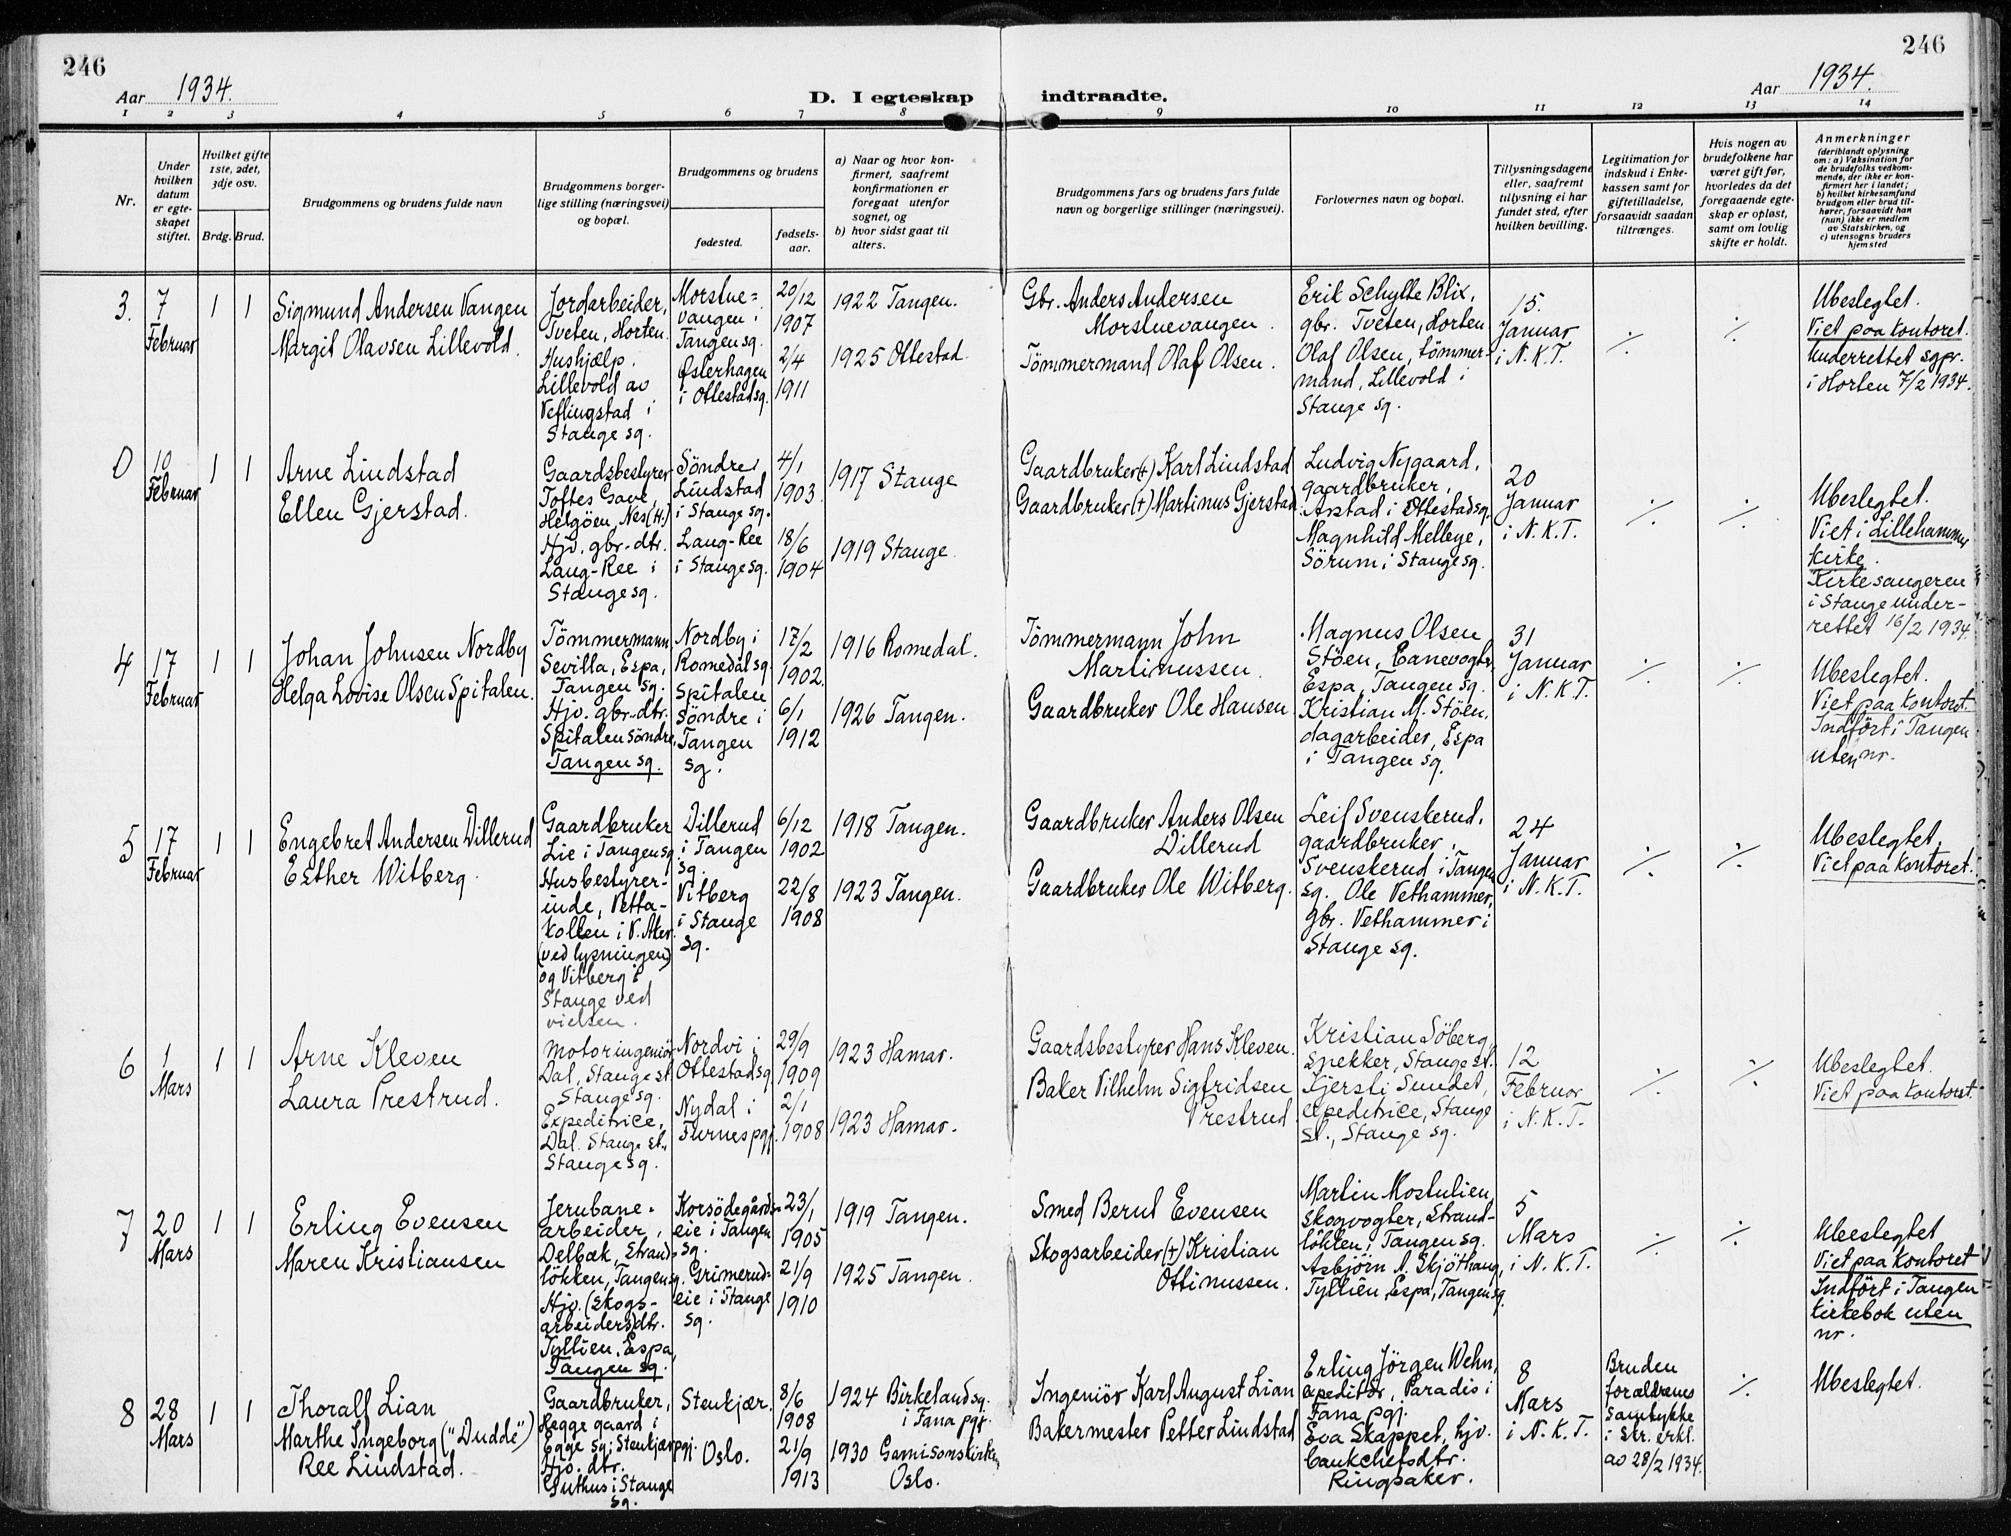 246
246
Aar 1934.
D. I egteskap indtraadte.
Aar 1934.
1 2 3 4 5 6 7 8 9 10 11 12 13 14
Nr.
Under
hvilken
datum
er egte-
skapet
stiftet.
Hvilket gifte
1ste, 2det,
3dje osv.
Brdg. Brud.
Brudgommens og brudens fulde navn
Brudgommens borger-
lige stilling (næringsvei)
og bopæl.
Brudgommens og brudens
fødested.
fødsels-
aar.
a) Naar og hvor kon-
firmert, saafremt
konfirmationen er
foregaat utenfor
sognet, og
b) hvor sidst gaat til
alters.
Brudgommens fars og brudens fars fulde
navn og borgerlige stillinger (næringsvei).
Forlovernes navn og bopæl.
Tillysningsdagene
eller, saafremt
tillysning ei har
fundet sted, efter
hvilken bevilling.
Legitimation for
indskud i Enke-
kassen samt for
giftetilladelse,
forsaavidt saadan
tiltrænges.
Hvis nogen av
brudefolkene har
været gift før,
hvorledes da det
foregaaende egte-
skap er opløst,
samt om lovlig
skifte er holdt.
Anmerkninger
(deriblandt oplysning
om: a) Vaksination for
de brudefolks vedkom-
mende, der ikke er kon-
firmert her i landet;
b) hvilket kirkesamfund
brudgom eller brud til-
hører, forsaavidt han
(hun) ikke er medlem
av Statskirken, og
c) utensogns bruders
hjemsted
3.
7
Februar
1 1
Sigmund Andersen Vangen
Margit Olavsen Lillevold.
Jordarbeider,
Tveten, Horten.
Hushjælp.
Lillevold av
Veflingstad i
Stange sg.
Morstue-
vangen i
Tangen sg.
Østerhagen
i Ottestad sg.
20/12
1907
2/4
1911
1922 Tangen.
1925 Ottestad.
Gbr. Anders Andersen
Morstuevangen.
Tømmermand Olaf Olsen.
Erik Schytte Blix,
gbr. Tveten, Horten
Olaf Olsen, tømmer-
mand, Lillevold i
Stange sg.
15.
Januar
i N.K.T.
./.
./.
Ubeslegtet.
Viet paa kontoret.
Underrettet sgpr.
i Horten 7/2 1934.
0
10
Februar
1 1
Arne Lindstad
Ellen Gjerstad.
Gaardsbestyrer
Toftes Gave,
Helgöen, Nes (H.)
Hjv. gbr.-dtr.
Laug-Ree i
Stange sg.
Söndre
Lindstad
i Stange sg.
Laug-Ree
i Stange sg.
4/1
1903.
18/6
1904
1917 Stange
1919 Stange.
Gaardbruker (+) Karl Lindstad
Gaardbruker (+) Martinus Gjerstad
Ludvig Nygaard,
gaardbruker,
Arstad i Ottestad sg.
Magnhild Mellbye,
Sörum i Stange sg.
20
Januar
i N.K.T.
./.
./.
Ubeslegtet.
Viet i Lillehammer
kirke.
Kirkesangeren
i Stange under-
rettet 16/2 1934.
4
17
Februar
1 1
Johan Johnsen Nordby
Helga Lovise Olsen Spitalen.
Tömmermann
Sevilla, Espa,
Tangen sg.
Hjv. gbr-dtr.
Spitalen söndre,
Tangen sg.
Nordby i
Romedal sg.
Spitalen
Söndre i
Tangen
sg.
17/2
1902.
6/1
1912
1916 Romedal.
1926 Tangen.
Tömmermann John
Martinussen.
Gaardbruker Ole Hansen
Magnus Olsen
Stöen, banevogter,
Espa, Tangen sg.
Kristian M. Stöen,
dagarbeider, Espa
i Tangen sg.
31
Januar
i N.K.T.
./.
./.
Ubeslegtet.
Viet paa kontoret.
Indført i Tangen
uten nr.
5
17
Februar
1 1
Engebret Andersen Dillerud
Esther Witberg.
Gaardbruker
Lie i Tangen sg.
Husbestyrer-
inde, Vetta-
kollen i V. Aker
(ved lysningen)
og Vitberg i
Stange ved
vielsen.
Dillerud
i Tangen
sg.
Vitberg
i Stange
sg.
6/12
1902
22/8
1908
1918 Tangen.
1923 Tangen.
Gaardbruker Anders Olsen
Dillerud
Gaardbruker Ole Witberg.
Leif Svenskerud,
gaardbruker,
Svenskerud i Tangen
sg. Ole Vethammer,
gbr. Vethammer i
Stange sg.
24
Januar
i N.K.T.
./.
./.
Ubeslegtet.
Viet paa kontoret.
6
1
Mars
1 1
Arne Kleven
Laura Prestrud.
Motoringeniör
Dal, Stange st.
Stange sg.
Expeditrice,
Dal. Stange st.,
Stange sg.
Nordvi i
Ottestad sg.
Nydal i
Furnes pgj.
29/9
1909
2/1
1908
1923 Hamar.
1923 Hamar.
Gaardsbestyrer Hans Kleven.
Baker Vilhelm Sigfridsen
Prestrud.
Kristian Söberg,
snekker, Stange st.
Kjersti Sundet,
expeditrice, Stange
st., Stange sg.
12
Februar
i N.K.T.
./.
./.
Ubeslegtet.
Viet paa kontoret.
7
20
Mars
1 1
Erling Evensen
Maren Kristiansen
Jernbane-
arbeider,
Delbak, Strand-
lökken, Tangen sg.
Hjv. (skogs-
arbeiders)dtr.
Tyllien, Espa,
Tangen sg.
Korsödegårds-
eie i Tangen
sg.
Grimerud-
eie i Stange
sg.
23/1
1905
21/9
1910
1919 Tangen.
1925 Tangen.
Smed Bernt Evensen
Skogsarbeider (+) Kristian
Ottinussen.
Martin Mostulien,
skogvogter, Strand-
lökken, Tangen sg.
Asbjörn A. Skjöthaug,
Tyllien, Espa, Tangen sg.
5
Mars
i N.K.T.
./.
./.
Ubeslegtet
Viet paa kontoret
Indfört i Tangen
kirkebok uten
nr.
8
28
Mars
1 1
Thoralf Lian
Marthe Ingeborg ("Duddé")
Ree Lindstad.
Gaardbruker,
Hegge gaard i
Egge sg. Stenkjær pgj
Hjv. dtr.
Guthus i Stange
sg.
Stenkjær.
Oslo.
8/6
1908
21/9
1913
1924 Birkeland sg.
i Fana pgj.
1930 Garnisonskirken
Oslo.
Ingeniör Karl August Lian
Bakermester Petter Lindstad
Erling Jörgen Wehn,
expeditör, Paradis i
Fana pgj.
Eva Skappel, hjv.
bankchefsdtr.
Ringsaker.
8
Mars
i N.K.T.
Bruden
forældrenes
samtykke
i skr. erkl.
av 28/2 1934.
./.
Ubeslegtet.